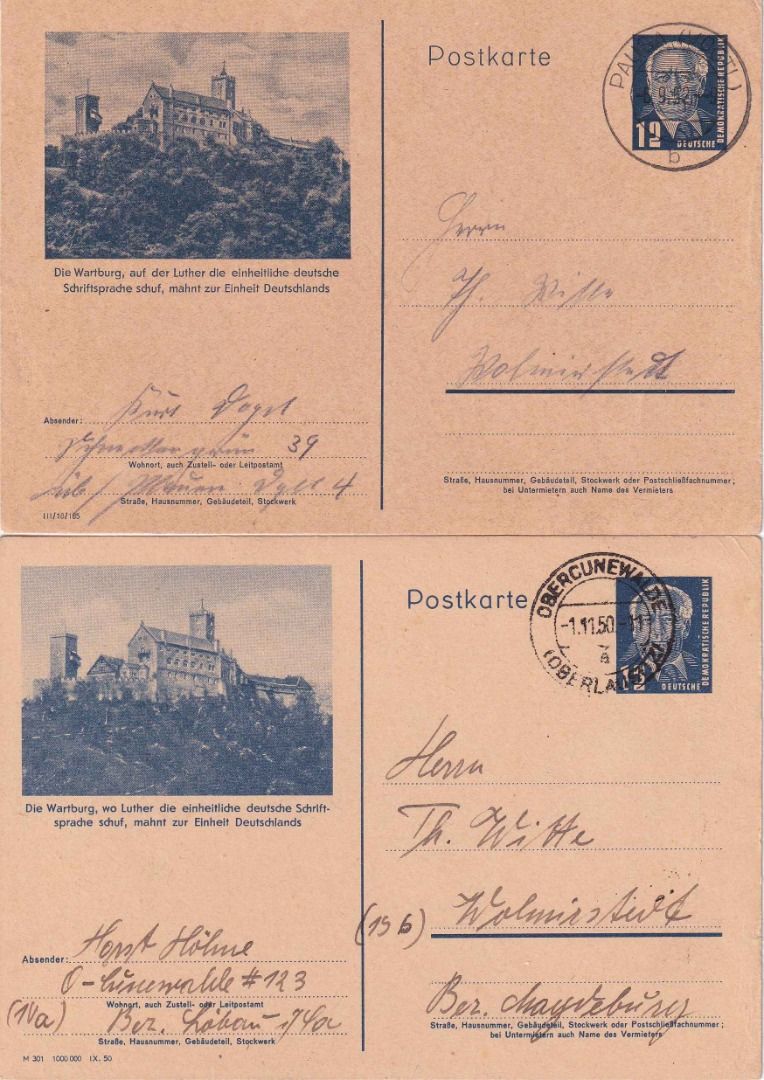 Die Wartburg, auf der Luther die einheitliche deutsche
Schriftsprache schuf, mahnt zur Einheit Deutschlands
Absender: Kurt Vogel
39
Wohnort, auch Zustell- oder Leitpostamt
4
Straße, Hausnummer, Gebäudeteil, Stockwerk
III/10/185
Postkarte
12
DEUTSCHE
DEMOKRATISCHE REPUBLIK
b
Herrn
Th. Witte
Wolmirstedt
Straße, Hausnummer, Gebäudeteil, Stockwerk oder Postschließfachnummer;
bei Untermietern auch Name des Vermieters
Die Wartburg, wo Luther die einheitliche deutsche Schrift-
sprache schuf, mahnt zur Einheit Deutschlands
Absender: Horst Höhne
O-Cunewalde #123
Wohnort, auch Zustell- oder Leitpostamt
(10a) Bez. Löbau i/Sa
Straße, Hausnummer, Gebäudeteil, Stockwerk
M 301 1000000 IX. 50
Postkarte
OBERCUNEWALDE
-1.11.50.-11
a
(OBERLAUSITZ)
DEUTSCHE
DEMOKRATISCHE REPUBLIK
Herrn
Th. Witte
(19b) Wolmirstedt
Bez. Magdeburg
Straße, Hausnummer, Gebäudeteil, Stockwerk oder Postschließfachnummer;
bei Untermietern auch Name des Vermieters